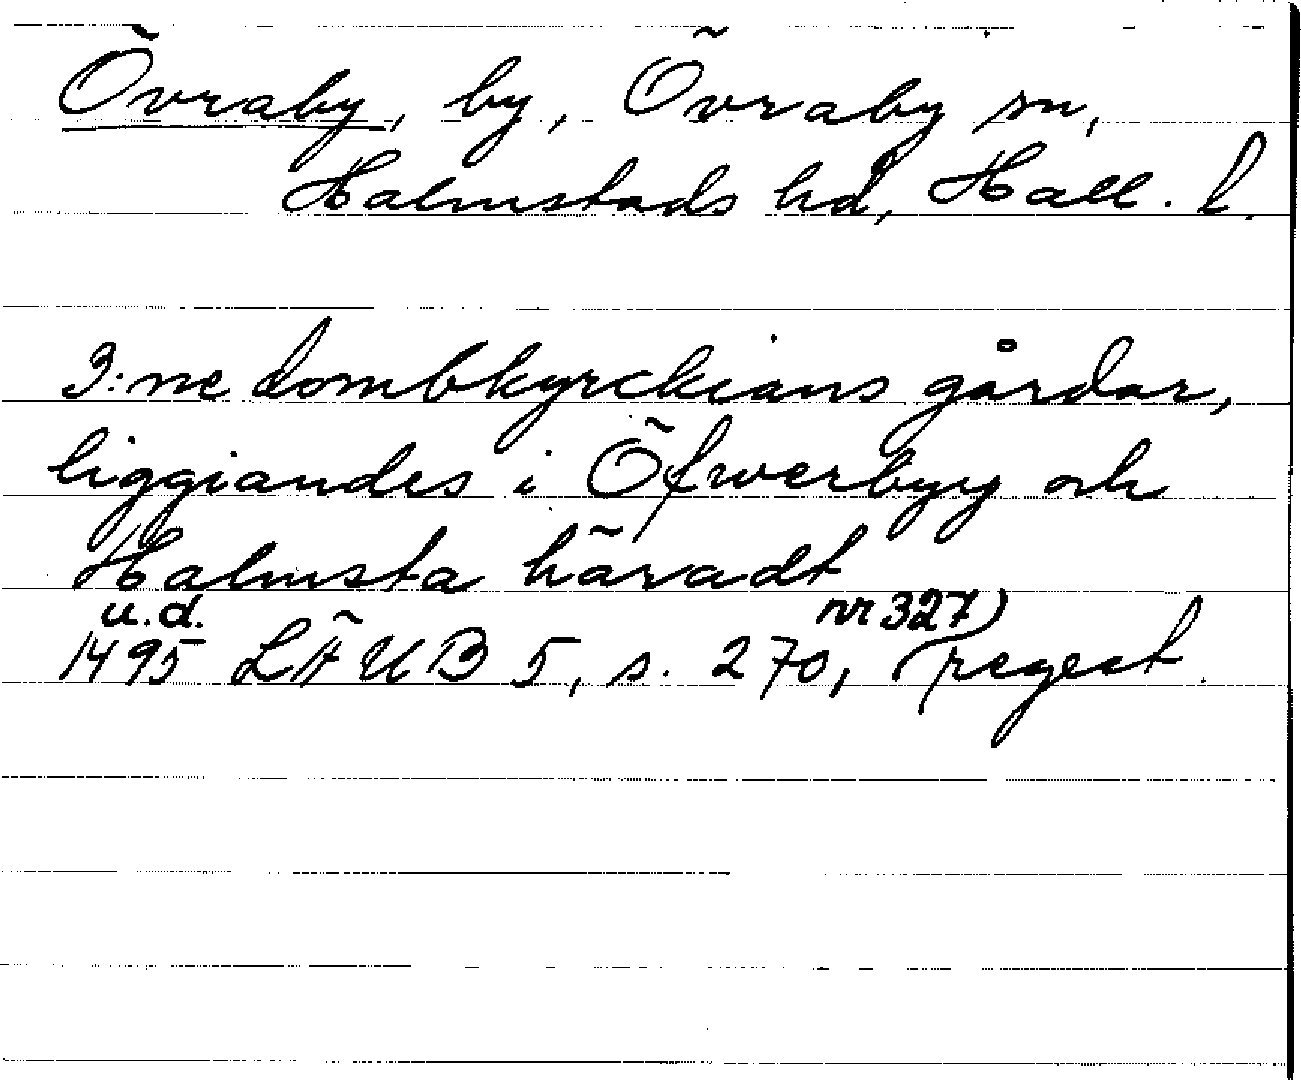 Övraby, by, Övraby sn,
Halmstads hd, Hall. l.
3:ne dombkyrckians gårdar,
liggiandes i Öfwerbyy och
Halmsta häradt
u.d. nr 327)
1495 LÄUB 5, s. 270, (regest.